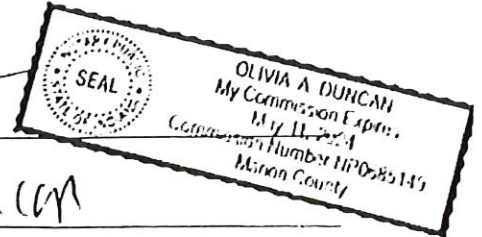 SEAL
OLIVIA A DUNCAN
My Commission Expires
May 11, 2024
Commission Number NP0685145
Marion County
can